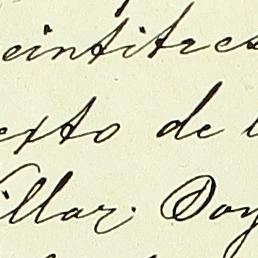 eintitres
exto de l
illar. Doy